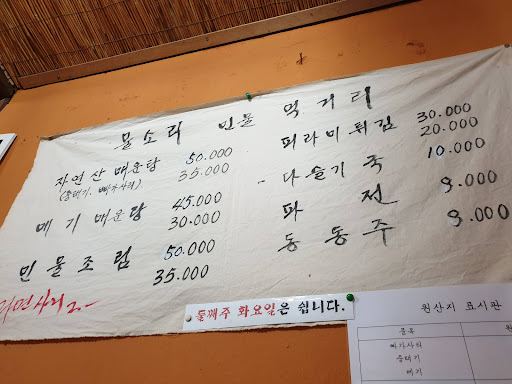 물소리 민물 먹거리
자연산 매운탕 50.000
(중태기, 빠가사리) 35.000
메기 매운탕 45.000
30.000
민물조림 50.000
35.000
라면사리 2.-
피라미튀김 30.000
20.000
- 다슬기 국 10.000
파 전 9.000
동동주 9.000
둘째주 화요일은 쉽니다.
원산지 표시판
종류
빠가사리
중태기
메기